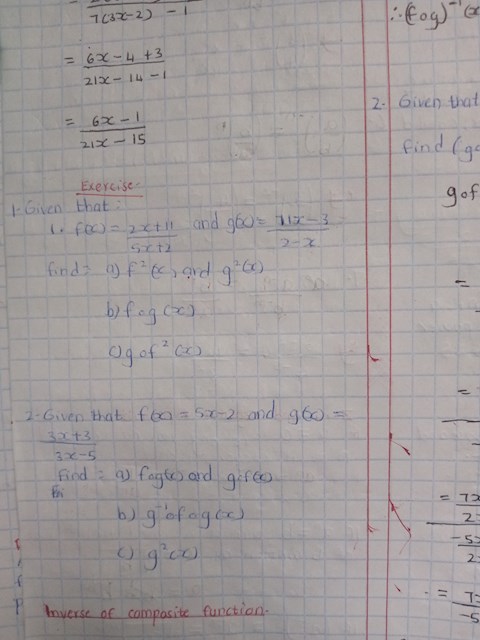 7(3x-2) - 1
= 6x-4+3
21x-14-1
= 6x-1
21x-15
Exercise-
1-Given that:
1. f(x) = 2x+11 and g(x) = 11x-3
5x+2 2-x
find= a) f²(x) and g²(x)
b) fog(x)
c) gof²(x)
2-Given that f(x) = 5x-2 and g(x) =
3x+3
3x-5
Find= a) fog(x) and gof(x)
b) g⁻¹ofog(x)
c) g²(x)
Inverse of composite function.
∴(fog)⁻¹(x
2. Given that
find (go
gof
=
=
= 7x
2-
-5x
2-
= 7x
-5